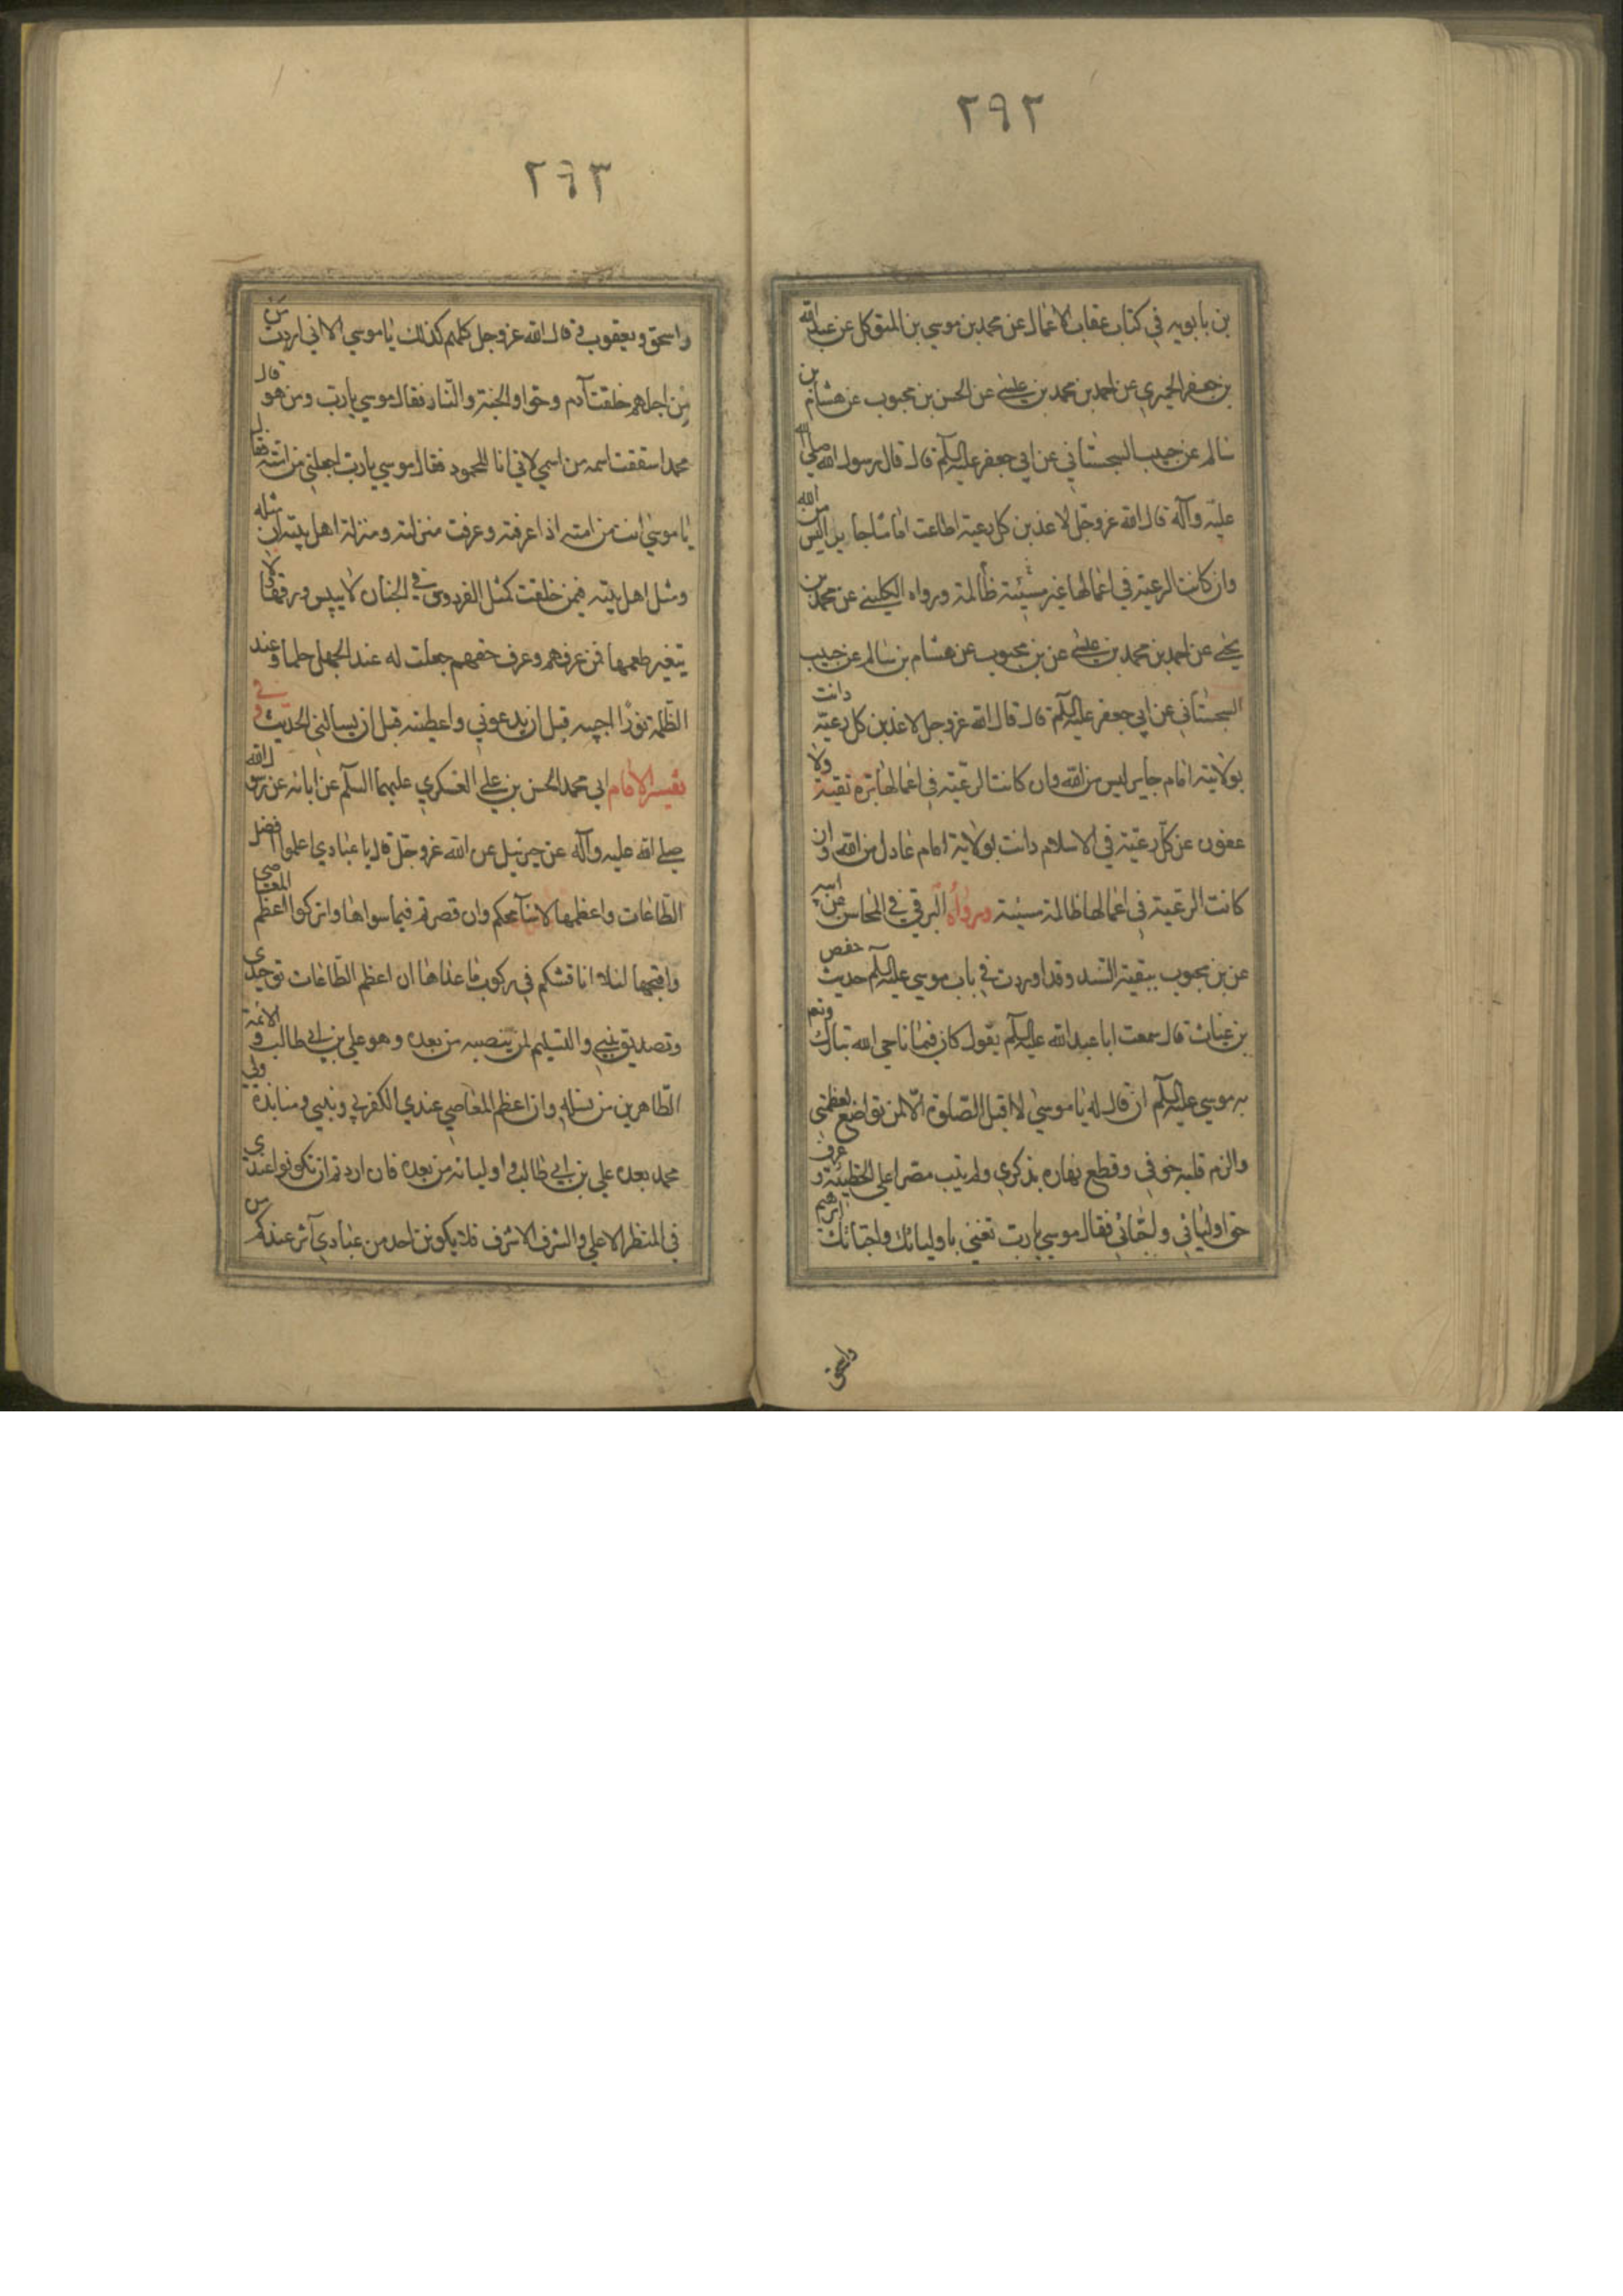 ٢٩٢
بن بابويه في كتاب عقاب الاعمال عن محمد بن موسي بن المتوكل عن عبد الله
بن جعفر الحميري عن احمد بن محمد بن عيسي عن الحسن بن محبوب عن هشام بن
سالم عن حبيب السجستاني عن ابي جعفر عليه السلم قال قال رسول الله صلي الله
عليه وآله قال الله عز وجل لاعذبن كل رعية اطاعت اماما جايرا ليس من
وان كانت الرعية في اعمالها غير مسيئة ظالمة ورواه الكليني عن محمد بن
يحيي عن احمد بن محمد بن عيسي عن بن محبوب عن هشام بن سالم عن حبيب
السجستاني عن ابي جعفر عليه السلم قال قال الله عز وجل لاعذبن كل رعية دانت
بولاية امام جاير ليس من الله وان كانت الرعية في اعمالها برة تقية ولا
عفون عن كل رعية في الاسلام دانت بولاية امام عادل من الله وان
كانت الرعية في اعمالها ظالمة مسيئة ورواه البرقي في المحاسن عن ابيه
عن بن محبوب ببقية السند وقد اوردت في باب موسي عليه السلم حديث حفص
بن غياث قال سمعت ابا عبد الله عليه السلم يقول كان فيما ناجي الله تبارك وتعم
به موسي عليه السلم ان قال له يا موسي لا اقبل الصلوة الا لمن تواضع لعظمتي
والزم قلبه خوفي وقطع نهاره بذكري ولم يبت مصرا علي الخطيئة وعرف
حق اوليائي واحبائي فقال موسي يا رب تعني باوليائك واحبائك ابرهيم
واسحق
٢٩٣
واسحق ويعقوب قال الله عز وجل كلهم كذلك يا موسي الا اني اردت من
من اجلهم خلقت آدم وحوا والجنة والنار فقال موسي يا رب ومن هو قال
محمد اشققت اسمه من اسمي لاني انا المحمود فقال موسي يا رب اجعلني من امته فقال
يا موسي انت من امته اذا عرفته وعرفت منزلته ومنزلة اهل بيته ان مثله
ومثل اهل بيته فيمن خلقت كمثل الفردوس في الجنان لا ييبس ورقها ولا
يتغير طعمها فمن عرفهم وعرف حقهم جعلت له عند الجهل حلما وعند
الظلمة نورا اجيبه قبل ان يدعوني واعطيته قبل ان يسالني الحديث وفي
تفسير الامام ابي محمد الحسن بن علي العسكري عليهما السلم عن ابائه عن رسول الله
صلي الله عليه وآله عن جبرئيل عن الله عز وجل قال يا عبادي اعملوا افضل
الطاعات واعظمها لاسامحكم وان قصرتم فيما سواها واتركوا اعظم المعاصي
واقبحها لئلا اناقشكم في ركوب ما عداها ان اعظم الطاعات توحيدي
وتصديق نبيي والتسليم لمن ينصبه من بعده وهو علي بن ابي طالب والائمة
الطاهرين من نسله وان اعظم المعاصي عندي الكفر بي وبنبيي ومنابذة ولي
محمد بعده علي بن ابي طالب واوليائه من بعده فان اردتم ان تكونوا عندي
في المنظر الاعلي والشرف الاشرف فلا يكونن احد من عبادي آثر عندكم من